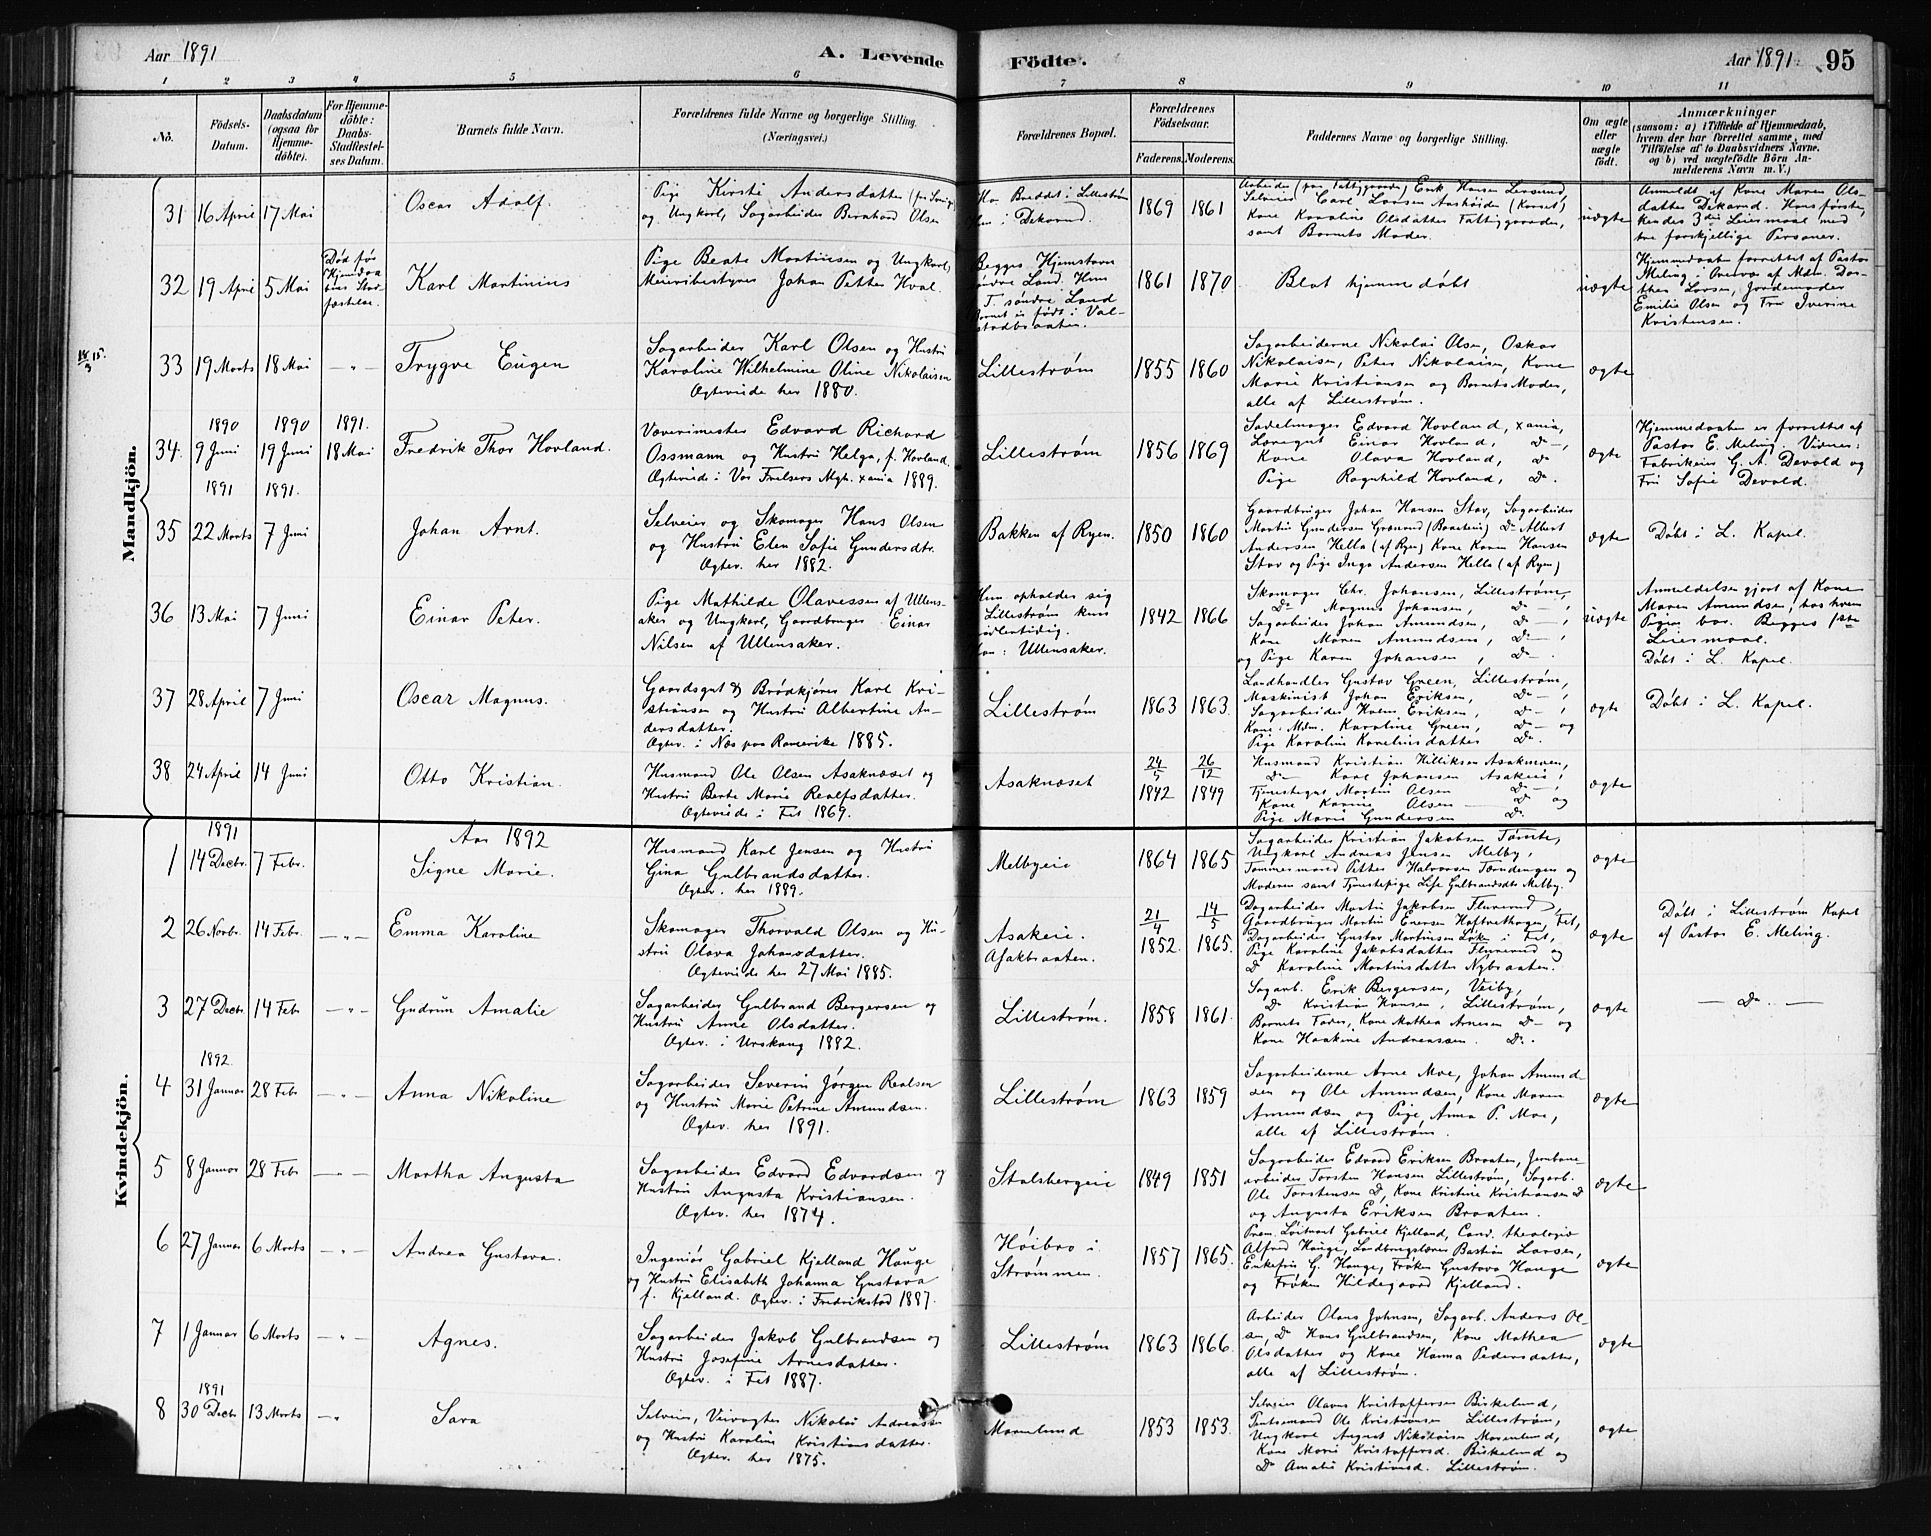 Aar 1891
A. Levende
Födte.
Aar 1891
95
1 2 3 4 5 6 7 8 9 10 11
No.
Födsels-
Datum.
Daabsdatum
(ogsaa for
Hjemme-
döbte).
For Hjemme-
döbte:
Daabs-
Stadfæstel-
ses Datum.
Barnets fulde Navn.
Forældrenes fulde Navne og borgerlige Stilling.
(Næringsvei.)
Forældrenes Bopæl.
Forældrenes
Födselsaar.
Faderens. Moderens.
Faddernes Navne og borgerlige Stilling.
Om ægte
eller
uægte
födt.
Anmærkninger
(saasom: a) i Tilfælde af Hjemmedaab,
hvem der har forrettet samme, med
Tilföielse af to Daabsvidners Navne.
og b) ved uægtefödte Börn An-
melderens Navn m. V.)
Mandkjön.
31 16 April 17 Mai
Oscar Adolf.
Pige Kirsti Andersdatter
og Ungkarl, Sagarbeider Bernhard Olsen
1869 1861
samt Barnets Moder.
uægte
Anmeldt af Kone Maren Ols-
datter Dikerud. Hans første,
hendes 3die Leiermaal med
tre forskjellige Personer.
32 19 April 5 Mai
Død før
Karl Martinius
Pige Beate Martinsen og Ungkarl,
Meieribestyrer Johan Petter Hval.
Begges Hjemstavn
søndre Land. Hun
T. søndre Land
Barnet er født i Val-
stadbraaten.
1861 1870
Blot hjemmedøbt
uægte
Hjemmedaab forrettet af Pastor
Meling i Overvær af Mdm. Dor-
thea Larsen, Jordemoder
Emilie Olsen og Fru Iverine
Kristensen.
33 19 Marts 18 Mai — " —
Trygve Eugen
Sagarbeider Karl Olsen og Hustru
Karoline Wilhelmine Oline Nikolaisen
Ægteviede her 1880.
Lillestrøm
1855 1860
Sagarbeiderne Nikolai Olsen, Oskar
Nikolaisen, Peter Nikolaisen, Kone
Marie Kristiansen og Barnets Moder,
alle af Lillestrøm.
ægte
1890 1890 1891.
34. 9 Juni 19 Juni 18 Mai
Fredrik Thor Hovland.
Væverimester Edvard Richard
Ossmann og Hustru Helga, f. Hovland.
Ægteviede i Vor Frelsers Mgh. Xania 1889.
Lillestrøm
1856 1869
Sadelmager Edvard Hovland, Xania,
Einar Hovland, Do —,
Kone Olava Hovland, Do
Pige Ragnhild Hovland, Do.
ægte
Hjemmedaaben er forrettet af
Pastor E. Meling. Vidner:
Fabrikeier G. A. Devold og
Fru Sofie Devold.
1891 1891.
35 22 Marts 7 Juni
Johan Arnt.
Selveier og Skomager Hans Olsen
og Hustru Elen Sofie Gundersdtr.
Ægtev. her 1882.
Bakken af Ryen.
1850 1860
Gaardbruger Johan Hansen Stav, Sagarbeider
Martin Gundersen Grønrud Do Albert
Andersen Hella (af Ryen) Kone Karen Hansen
Stav og Pige Inga Andersen Hella (af Ryen)
ægte
Døbt i L. Kapel.
36 13 Mai 7 Juni
Einar Peter.
Pige Mathilde Olavessen af Ullens-
aker og Ungkarl, Gaardbruger Einar
Nilsen af Ullensaker.
Hun opholder sig
Lillestrøm kun
midlertidig.
Han: Ullensaker.
1842 1866
Skomager Chr. Johansen, Lillestrøm,
Do Magnus Johansen, Do — ,
Sagarbeider Johan Amundsen, Do — ,
Kone Maren Amundsen, Do —
og Pige Karen Johansen, Do — .
uægte
Anmeldelse gjort af Kone
Maren Amundsen, hos hvem
Pigen bor. Begges 1ste
Leiermaal.
Døbt i L. Kapel.
37 28 April 7 Juni
Oscar Magnus.
Gaardsgut & Brødkjører Karl Kri-
stiansen og Hustru Albertine An-
dersdatter.
Ægtev. i Nes paa Romerike 1885.
Lillestrøm
1863 1863
Landhandler Gustav Green, Lillestrøm,
Maskinist Johan Eriksen, Do — ,
Sagarbeider Eriksen, Do — ,
Kone Mdm. Karoline Green, Do — og
Pige Karoline Kareliusdatter Do.
ægte
Døbt i L. Kapel.
38 24 April 14 Juni
Otto Kristian.
Husmand Ole Olsen Asaknæset og
Hustru Berte Marie Realfsdatter.
Ægteviede i Fet 1869.
Asaknæset
24/5 1842 26/12 1849
Husmand Kristian Asaknesen,
Do — Karl Johansen Asakeie,
Tjenestegut Martin Olsen Do — ,
Kone Karine Olsen Do og
Pige Marie Gundersen Do.
ægte
Kvindekjön.
Aar 1892
1891
1 14 Decbr. 7 Febr.
Signe Marie.
Husmand Karl Jensen og Hustru
Gina Gulbrandsdatter.
Ægtev. her 1889.
Melbyeie
1864 1865
Sagarbeider Kristian Jakobsen
Ungkarl Andreas Jensen Melby,
Tømmermand Petter Halvorsen Tærudengen og
Moderen samt Tjenestepige Lise Gulbrandsdtr Melby.
ægte
2 26 Novbr. 14 Febr. — " —
Emma Karoline
Skomager Thorvald Olsen og Hu-
stru Olava Johansdatter.
Ægteviede her 27 Mai 1885.
Asakeie.
Asakbraaten.
21/4 1852. 14/5 1865.
Dagarbeider Martin Jakobsen Fluerud,
Gaardbruger Martin Enersen Fet,
Dagarbeider Gustav Martinsen i Fet,
Pige Karoline Jakobsdatter Fluerud og
Do Karoline Martinsdatter Nybraaten.
ægte
Døbt i Lillestrøm Kapel
af Pastor E. Meling.
3 27 Decbr. 14 Febr — " —
Gudrun Amalie
Sagarbeider Gulbrand Bergersen og
Hustru Anne Olsdatter.
Ægtev. i Urskoug 1882.
Lillestrøm.
1858 1861.
Sagarb. Erik Bergersen, Veiby,
Do Kristian Hansen, Lillestrøm,
Barnets Fader, Kone Mathea Arnesen Do — og
Kone Haakine Andreassen. Do.
ægte
— Do. —
1892.
4 31 Januar 28 Febr — " —
Anna Nikoline
Sagarbeider Severin Jørgen Realsen
og Hustru Marie Petrine Amundsen.
Ægtev. her 1891.
Lillestrøm
1863 1859
Sagarbeiderne Arne Moe, Johan Amund-
sen og Ole Amundsen, Kone Maren
Amundsen og Pige Anna P. Moe,
alle af Lillestrøm.
ægte
5 8 Januar 28 Febr — " —
Martha Augusta
Sagarbeider Edvard Edvardsen og
Hustru Augusta Kristiansen.
Ægtev. her 1874.
Stalsbergeie
1849 1851
Sagarbeider Edvard Eriksen Braaten, Jernbane-
arbeider Torsten Hansen Lillestrøm, Sagarb.
Ole Torstensen Do, Kone Kristine Kristiansen Do
og Augusta Eriksen Braaten.
ægte
6 27 Januar 6 Marts — " —
Andrea Gustava.
Ingeniør Gabriel Kjelland Hauge
og Hustru Elisabeth Johanna Gustava
f. Kjelland. Ægtev. i Fredrikstad 1887.
Høibro i
Strømmen.
1857 1865.
Prem. Løitnant Gabriel Kjelland, Cand. theologiæ
Alfred Hauge, Landbrugslærer Bastian Larsen,
Enkefru G. Hauge, Frøken Gustava Hauge
og Frøken Hildegaard Kjelland.
ægte
7 1 Januar 6 Marts — " —
Agnes.
Sagarbeider Jakob Gulbrandsen og
Hustru Josefine Arnesdatter.
Ægtev. i Fet 1887.
Lillestrøm
1863 1866.
Arbeider Olaus Johnsen, Sagarb. Anders Ol-
sen, Do Hans Gulbrandsen, Kone Mathea
Olsdatter og Kone Hanna Pedersdatter,
alle af Lillestrøm.
ægte
1891
8 30 Decbr 13 Marts — "
Sara
Selveier, Veivogter Nikolai Andreassen
og Hustru Karoline Kristiansdatter.
Ægtev. her 1875.
Morenlund
1853 1853.
Selveier Olavus Kristoffersen Birkelund,
Ole Kristiansen Lillestrøm,
Ungkarl August Nikolaisen Morenlund,
Kone Marie Kristoffersd. Birkelund og
Do Amalie Kristiansd. Lillestrøm.
ægte